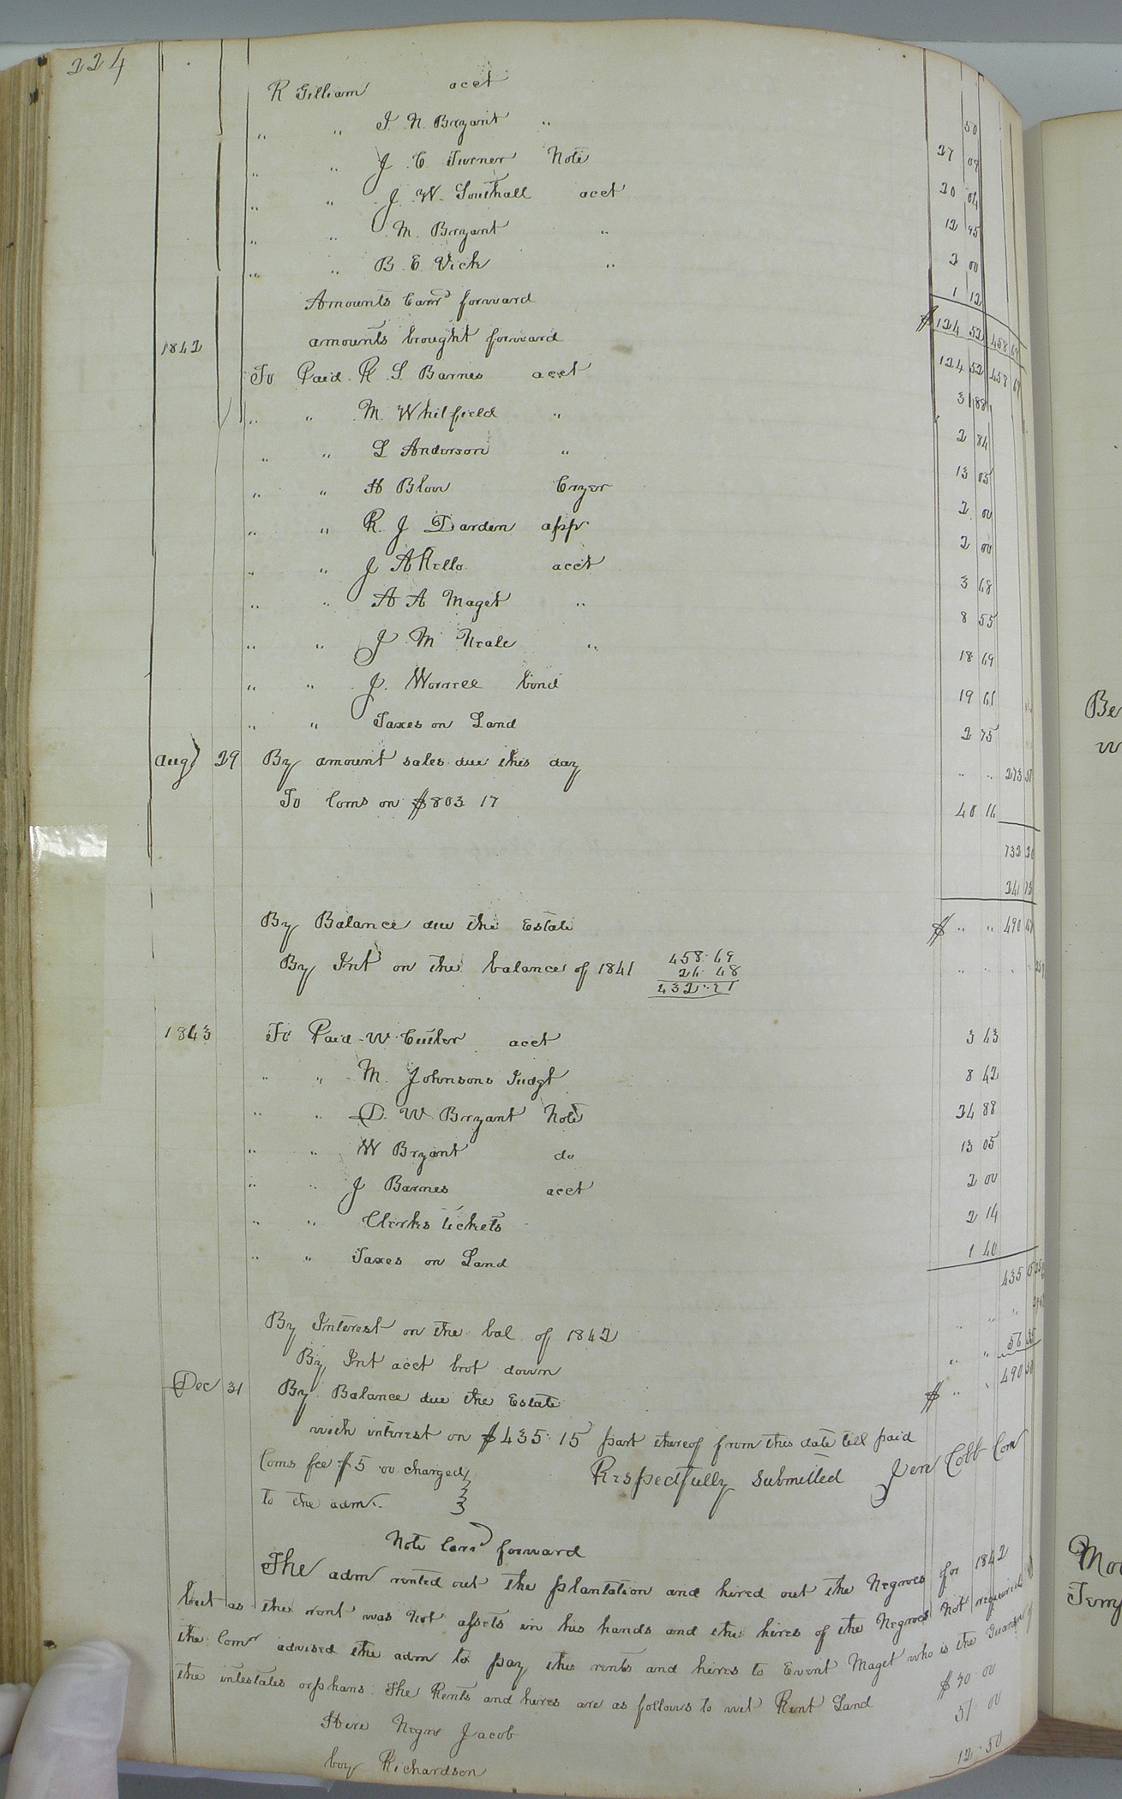 224
R Gilliam acct 50
" " J. N. Bryant " 27 07
" " J. E Turner Note 20 04
" " J. W. Southall acct 12 95
" " M. Bryant " 2 00
" " B. E. Vick " 1 12
Amounts Carrd forward $124 52 458 69
1842 amounts brought forward 124 52 458 69
To Paid R. S. Barnes acct 3 88
" " M. Whitfield " 2 84
" " S Anderson " 13 05
" " H Blow Cryer 2 00
" " R. J Darden app 2 00
" " J A Rello acct 3 68
" " A A Maget " 8 55
" " J M Neale " 18 69
" " J. Worrell bond 19 61
" " Taxes on Land 2 75
Augt 29 By amount sales due this day " " 273
To Coms on $803 17 40 16
732
241 73
By Balance due the Estate $ " " 490
By Int on the balance of 1841 458.69
26 48
432.21
1843 To Paid W Cutler acct 3 43
" " M. Johnsons Judgt 8 42
" " D. W Bryant Note 24 88
" " W Bryant do 13 05
" " J Barnes acct 2 00
" " Clerks tickets 2 14
" " Taxes on Land 1 40
435 15
By Interest on the bal of 1842
By Int acct brot down " " 56 35
Dec 31 By Balance due the Estate $ " " 490 50
with interest on $435.15 part thereof from this date till paid
Coms fee $5 00 charged Respectfully submitted Jere Cobb Com
to the adm.
Note Carrd forward
The adm rented out the plantation and hired out the Negroes for 1842
but as the rent was not assets in his hands and the hires of the Negroes not required
the Comr advised the adm to pay the rents and hires to Event Maget who is the Guardn of
the intestates orphans. The Rents and hires are as follows to wit Rent Land $30.00
Hire Negro Jacob 51.00
boy Richardson 12.50
Be
w
Mo
Terry